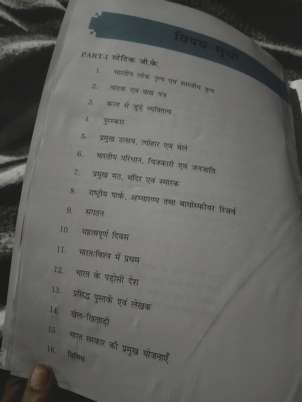 विषय सूची
PART-I स्टेटिक जी.के.
1. भारतीय लोक नृत्य एवं शास्त्रीय नृत्य
2. वादक एवं वाद्य यंत्र
3. कला से जुड़े व्यक्तित्व
4. पुरस्कार
5. प्रमुख उत्सव, त्योहार एवं मेले
6. भारतीय परिधान, चित्रकारी एवं जनजाति
7. प्रमुख मठ, मंदिर एवं स्मारक
8. राष्ट्रीय पार्क, अभ्यारण्य तथा बायोस्फीयर रिजर्व
9. संगठन
10. महत्वपूर्ण दिवस
11. भारत/विश्व में प्रथम
12. भारत के पड़ोसी देश
13. प्रसिद्ध पुस्तकें एवं लेखक
14. खेल-खिलाड़ी
15. भारत सरकार की प्रमुख योजनाएँ
16. विविध